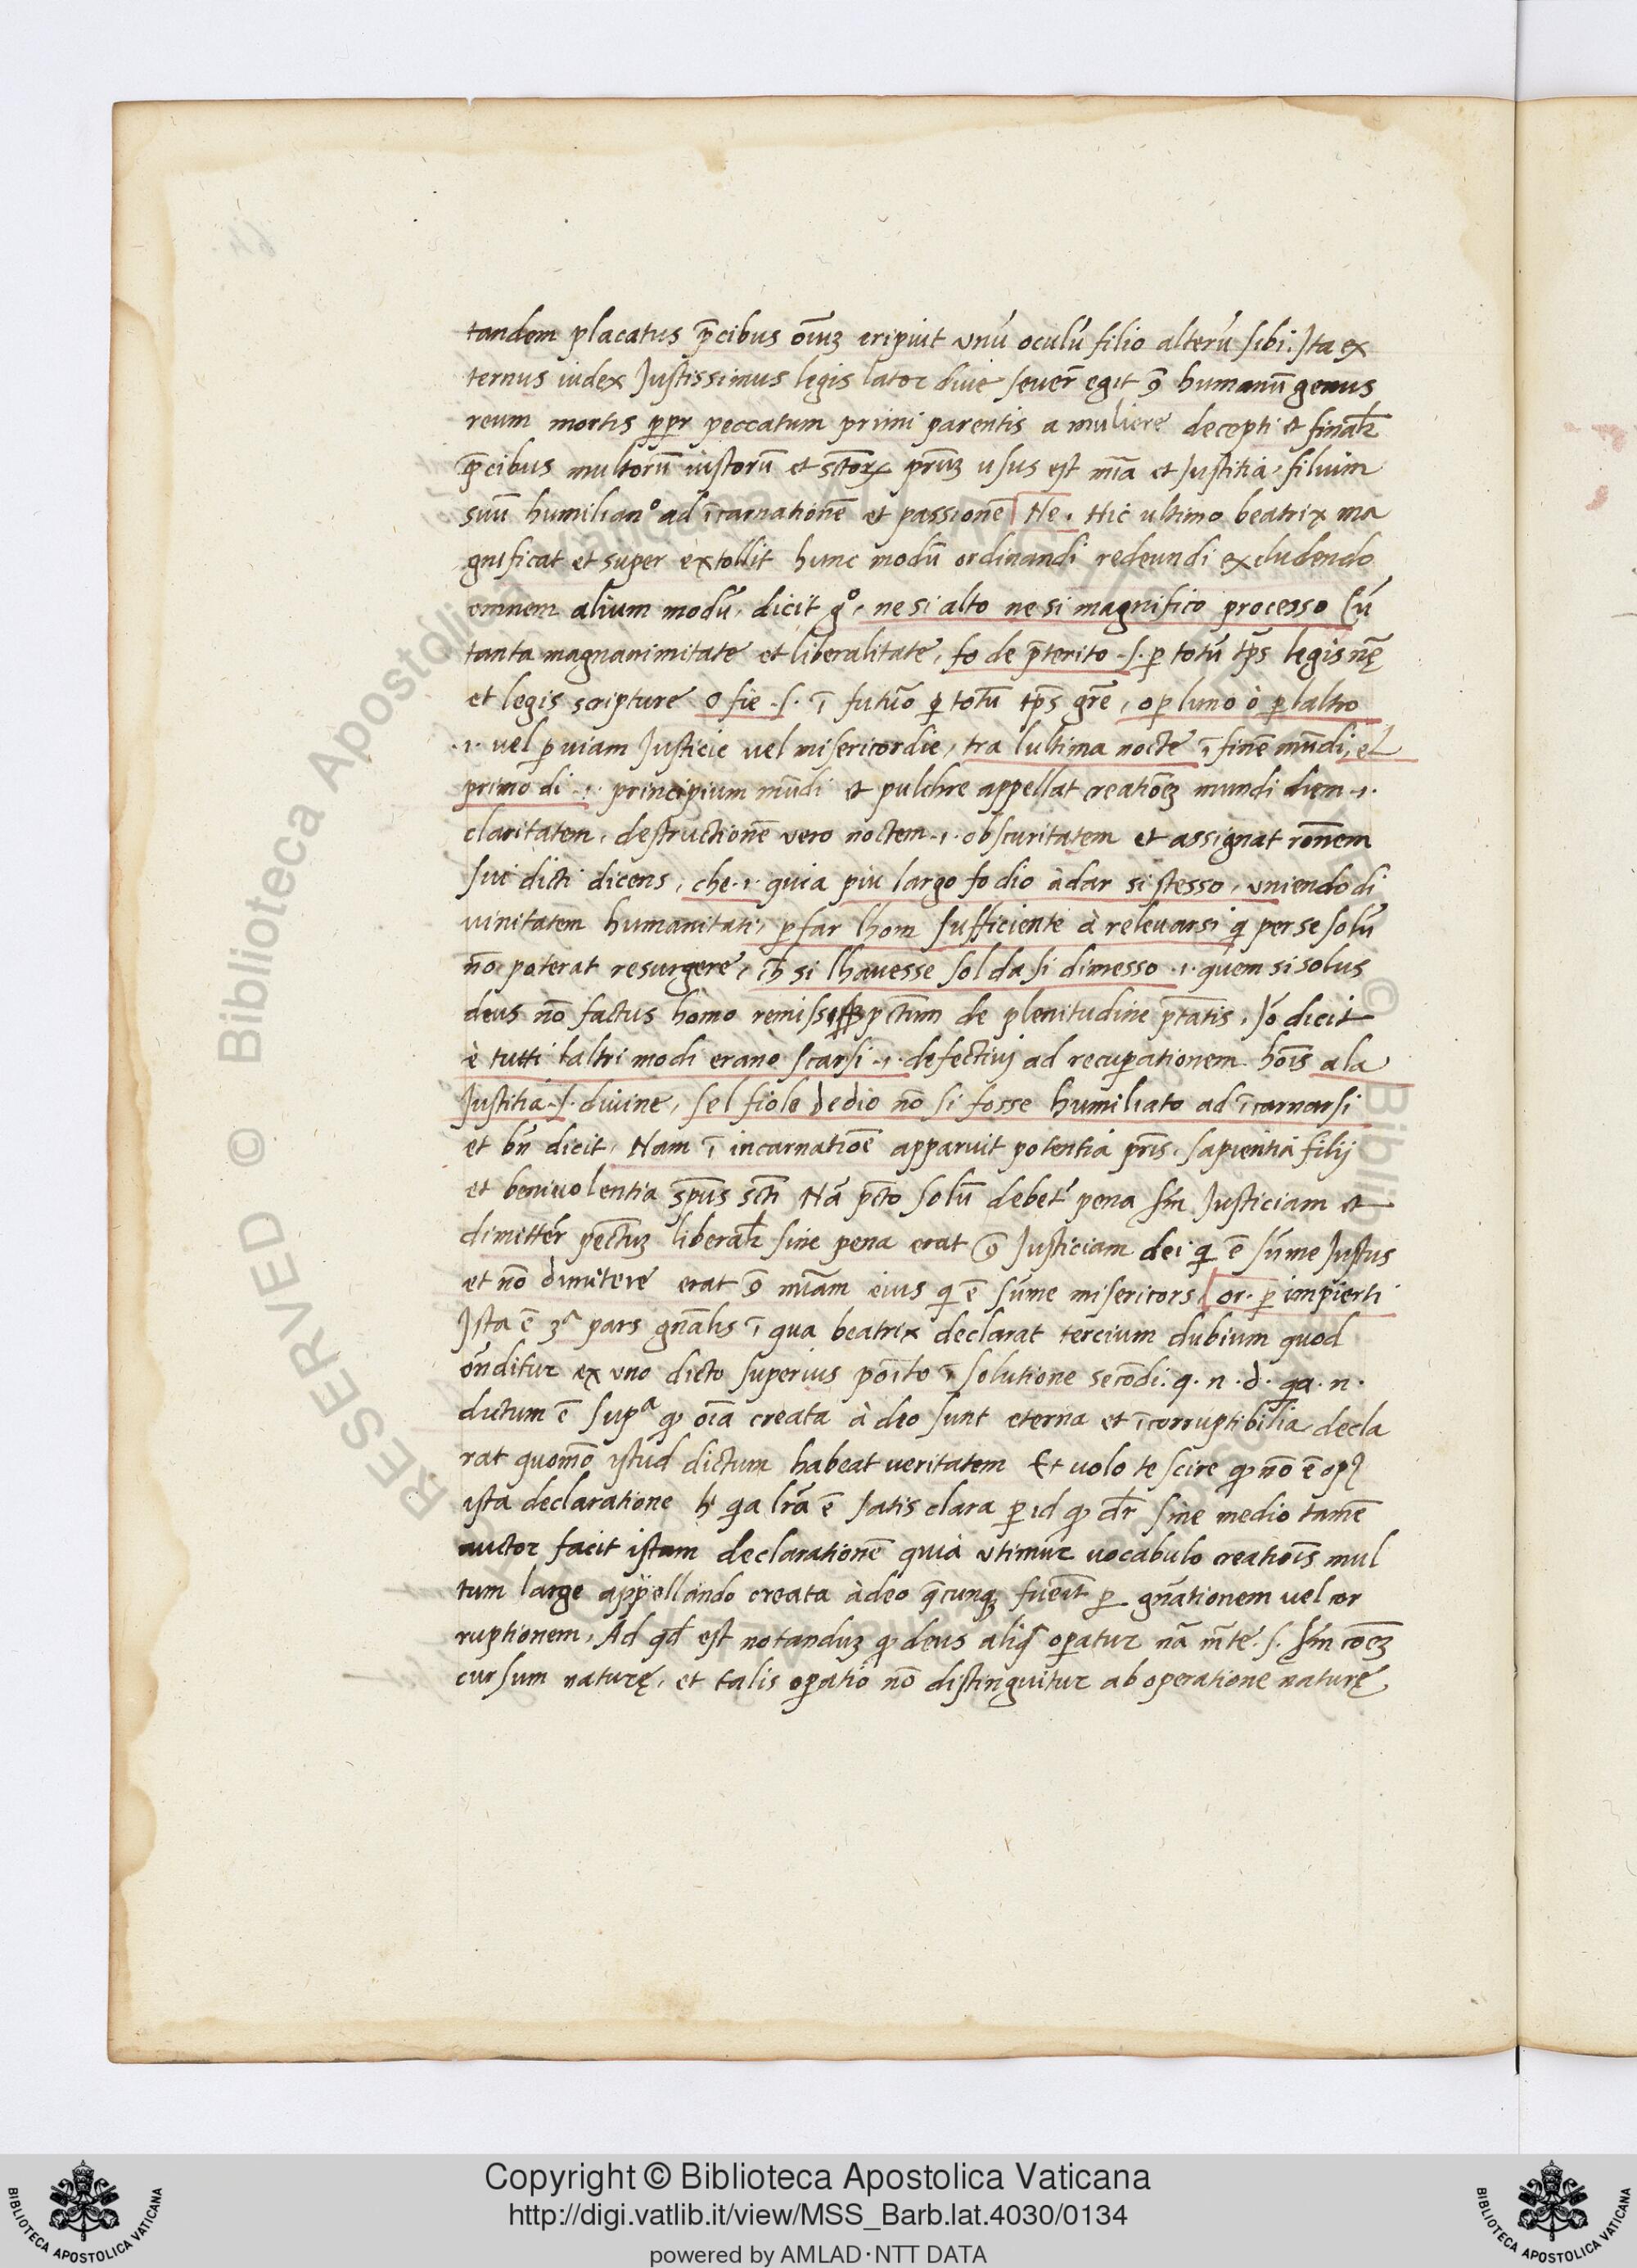 tandem placatus p̄cibus oīuꝫ eripuit unū oculū filio alterū sibi. Ita ex
ternus iudex Justissimus legis lator diue seuer̄ egit ꝯ̄ humanū genus
reum mortis ꝓpr peccatum primi parentis a muliere decepti et finalꝉr
p̄cibus multorū iustorū et sctōrꝝ prūꝫ usus est mīa et Justitia, filium
suū humilianº ad ī̄carnationē et passionē Ne. Hic ultimo beatrix ma
gnificat et super extollit hunc modū ordinandi redeundi excludendo
omnem alium modū, dicit gº, ne si alto ne si magnifico processo Cū
tanta magnanimitate et liberalitate, fo de p̄terito .s. ꝑ totū tp̄s legis nr̄ę
et legis scripture O fie .s. ī futuō ꝑ totū tp̄s gr̄e, o ꝑ luno ò ꝑ laltro
.i. uel ꝑ uiam Justicie uel misericordie, tra lultima nocte ī finē mūdi, el
primo di .i. principium mūdi et pulchre appellat creatiōeꝫ mundi diem .i.
claritatem, destructionē vero noctem .i. obscuritatem et assignat rōnem
sui dicti dicens, che .i. quia piu largo fo dio à dar si stesso, uniendo di
uinitatem humanitati, ꝑ far lhom sufficiente à releuarsi q̨ per se solū
nō poterat resurgere, cħ si lhauesse sol da si dimesso .i. quem si solus
deus nō factus homo pctūm de plenitudine ptātis, Iō dicit
è tutti laltri modi erano scarsi .i. defectiuj ad recuꝑationem hoīs a la
Justitia .s. diuine, sel fiolo de dio nō si fosse humiliato ad ī̄carnarsi
et bn̄ dicit, Nam ī incarnatiōe apparuit potentia pr̄is, sapientia filij
et beniuolentia spūs scti Nā pctō solū debet̄ pena scm̄ Justiciam et
dimitter̄ pectūꝫ liberalꝉr sine pena erat ꝯ̄ Justiciam dei q̨ ē sūme Justus
et nō dimitere erat ꝯ̄ mīam eius q̨ ē sūme misericors or. ꝑ impierti
Ista ē 3ª pars gnālis ī qua beatrix declarat tercium dubium quod
ōnditur ex uno dicto superius poīto ī solutione secōdi. q. n. d. qa. n.
dictum ē supª ꝙ oīa creata à deo sunt eterna et ī̄corruptibilia decla
rat quomō istud dictum habeat ueritatem Et uolo te scire ꝙ nō ē opꝫ
ista declaratione h̄ q̨a lr̄a ē satis clara ꝑ id ꝙ dr̄ sine medio tamē
auctor facit istam declarationē quia utimur uocabulo creatiōis mul
tum large appellando creata à deo q̄cunqꝫ fuerīt ꝑ gnātionem uel cor
ruptionem, Ad qđ est notanduꝫ ꝙ deus aliq̄ oꝑatur nā mīte .s. scm̄ cōeꝫ
cursum naturę, et talis oꝑatio nō distinguitur ab operatione naturę
Copyright © Biblioteca Apostolica Vaticana
http://digi.vatlib.it/view/MSS_Barb.lat.4030/0134
powered by AMLAD·NTT DATA